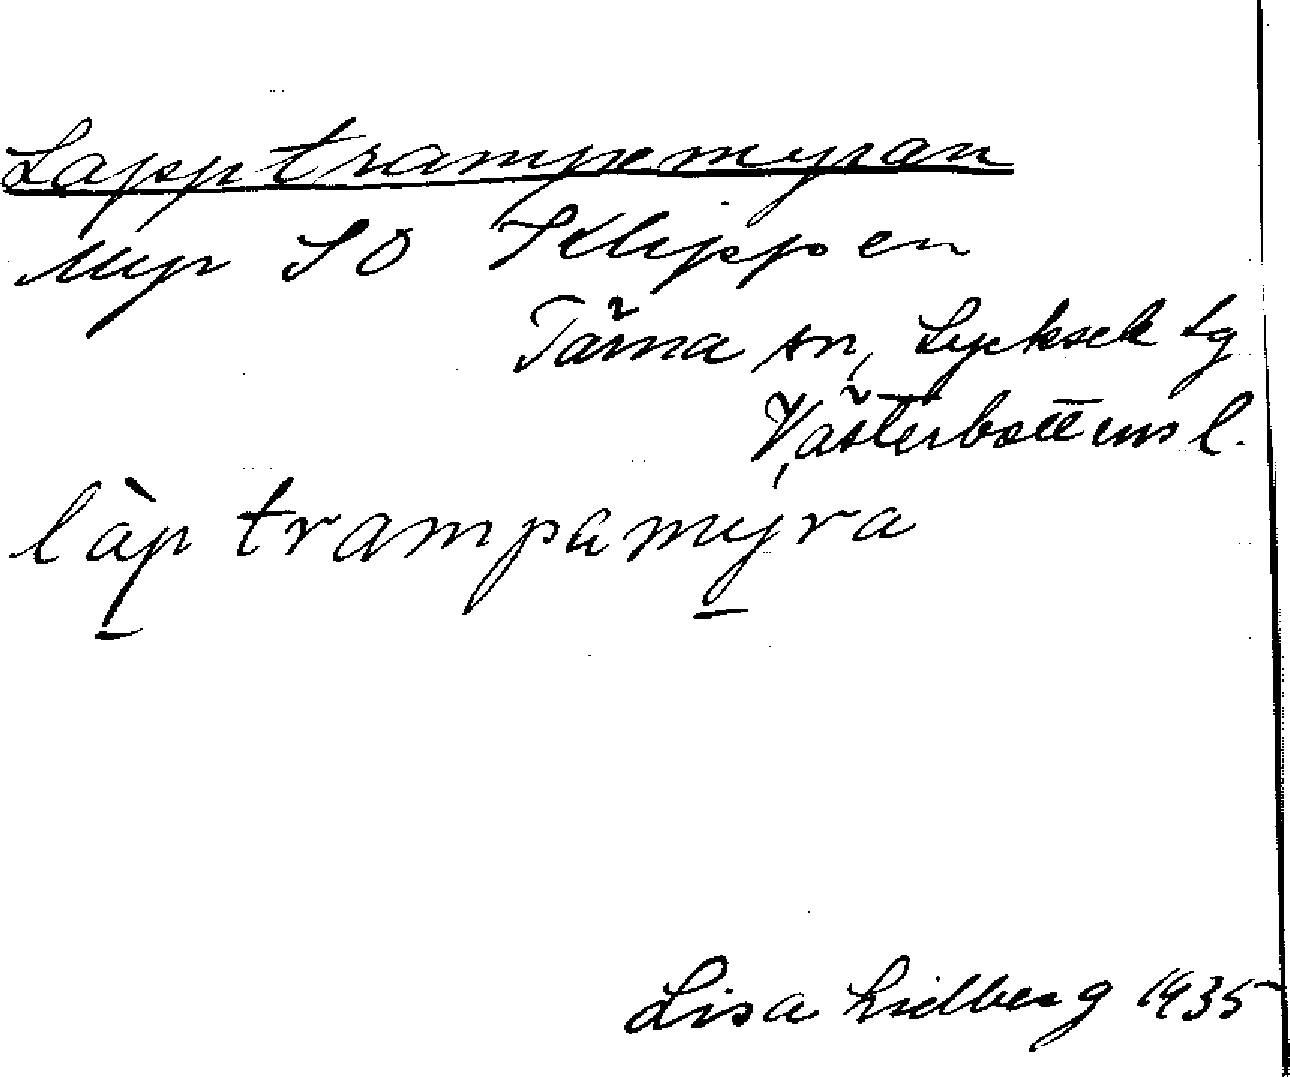 Lapptrampemyran
Myr SO Klippen
Tärna sn, Lycksele lg
Västerbottens l.
làp trampamyra
Lisa Lidberg 1935